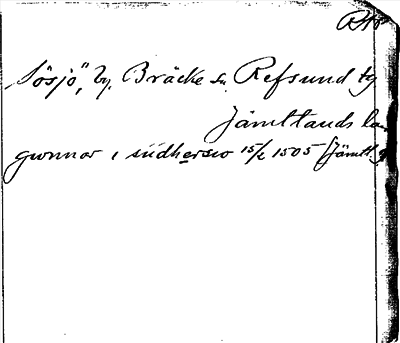 Sösjö", by, Bräcke sn Refsund
Jämtlands
gunnar i siidhersio 15/2 1505 (Jämtl.